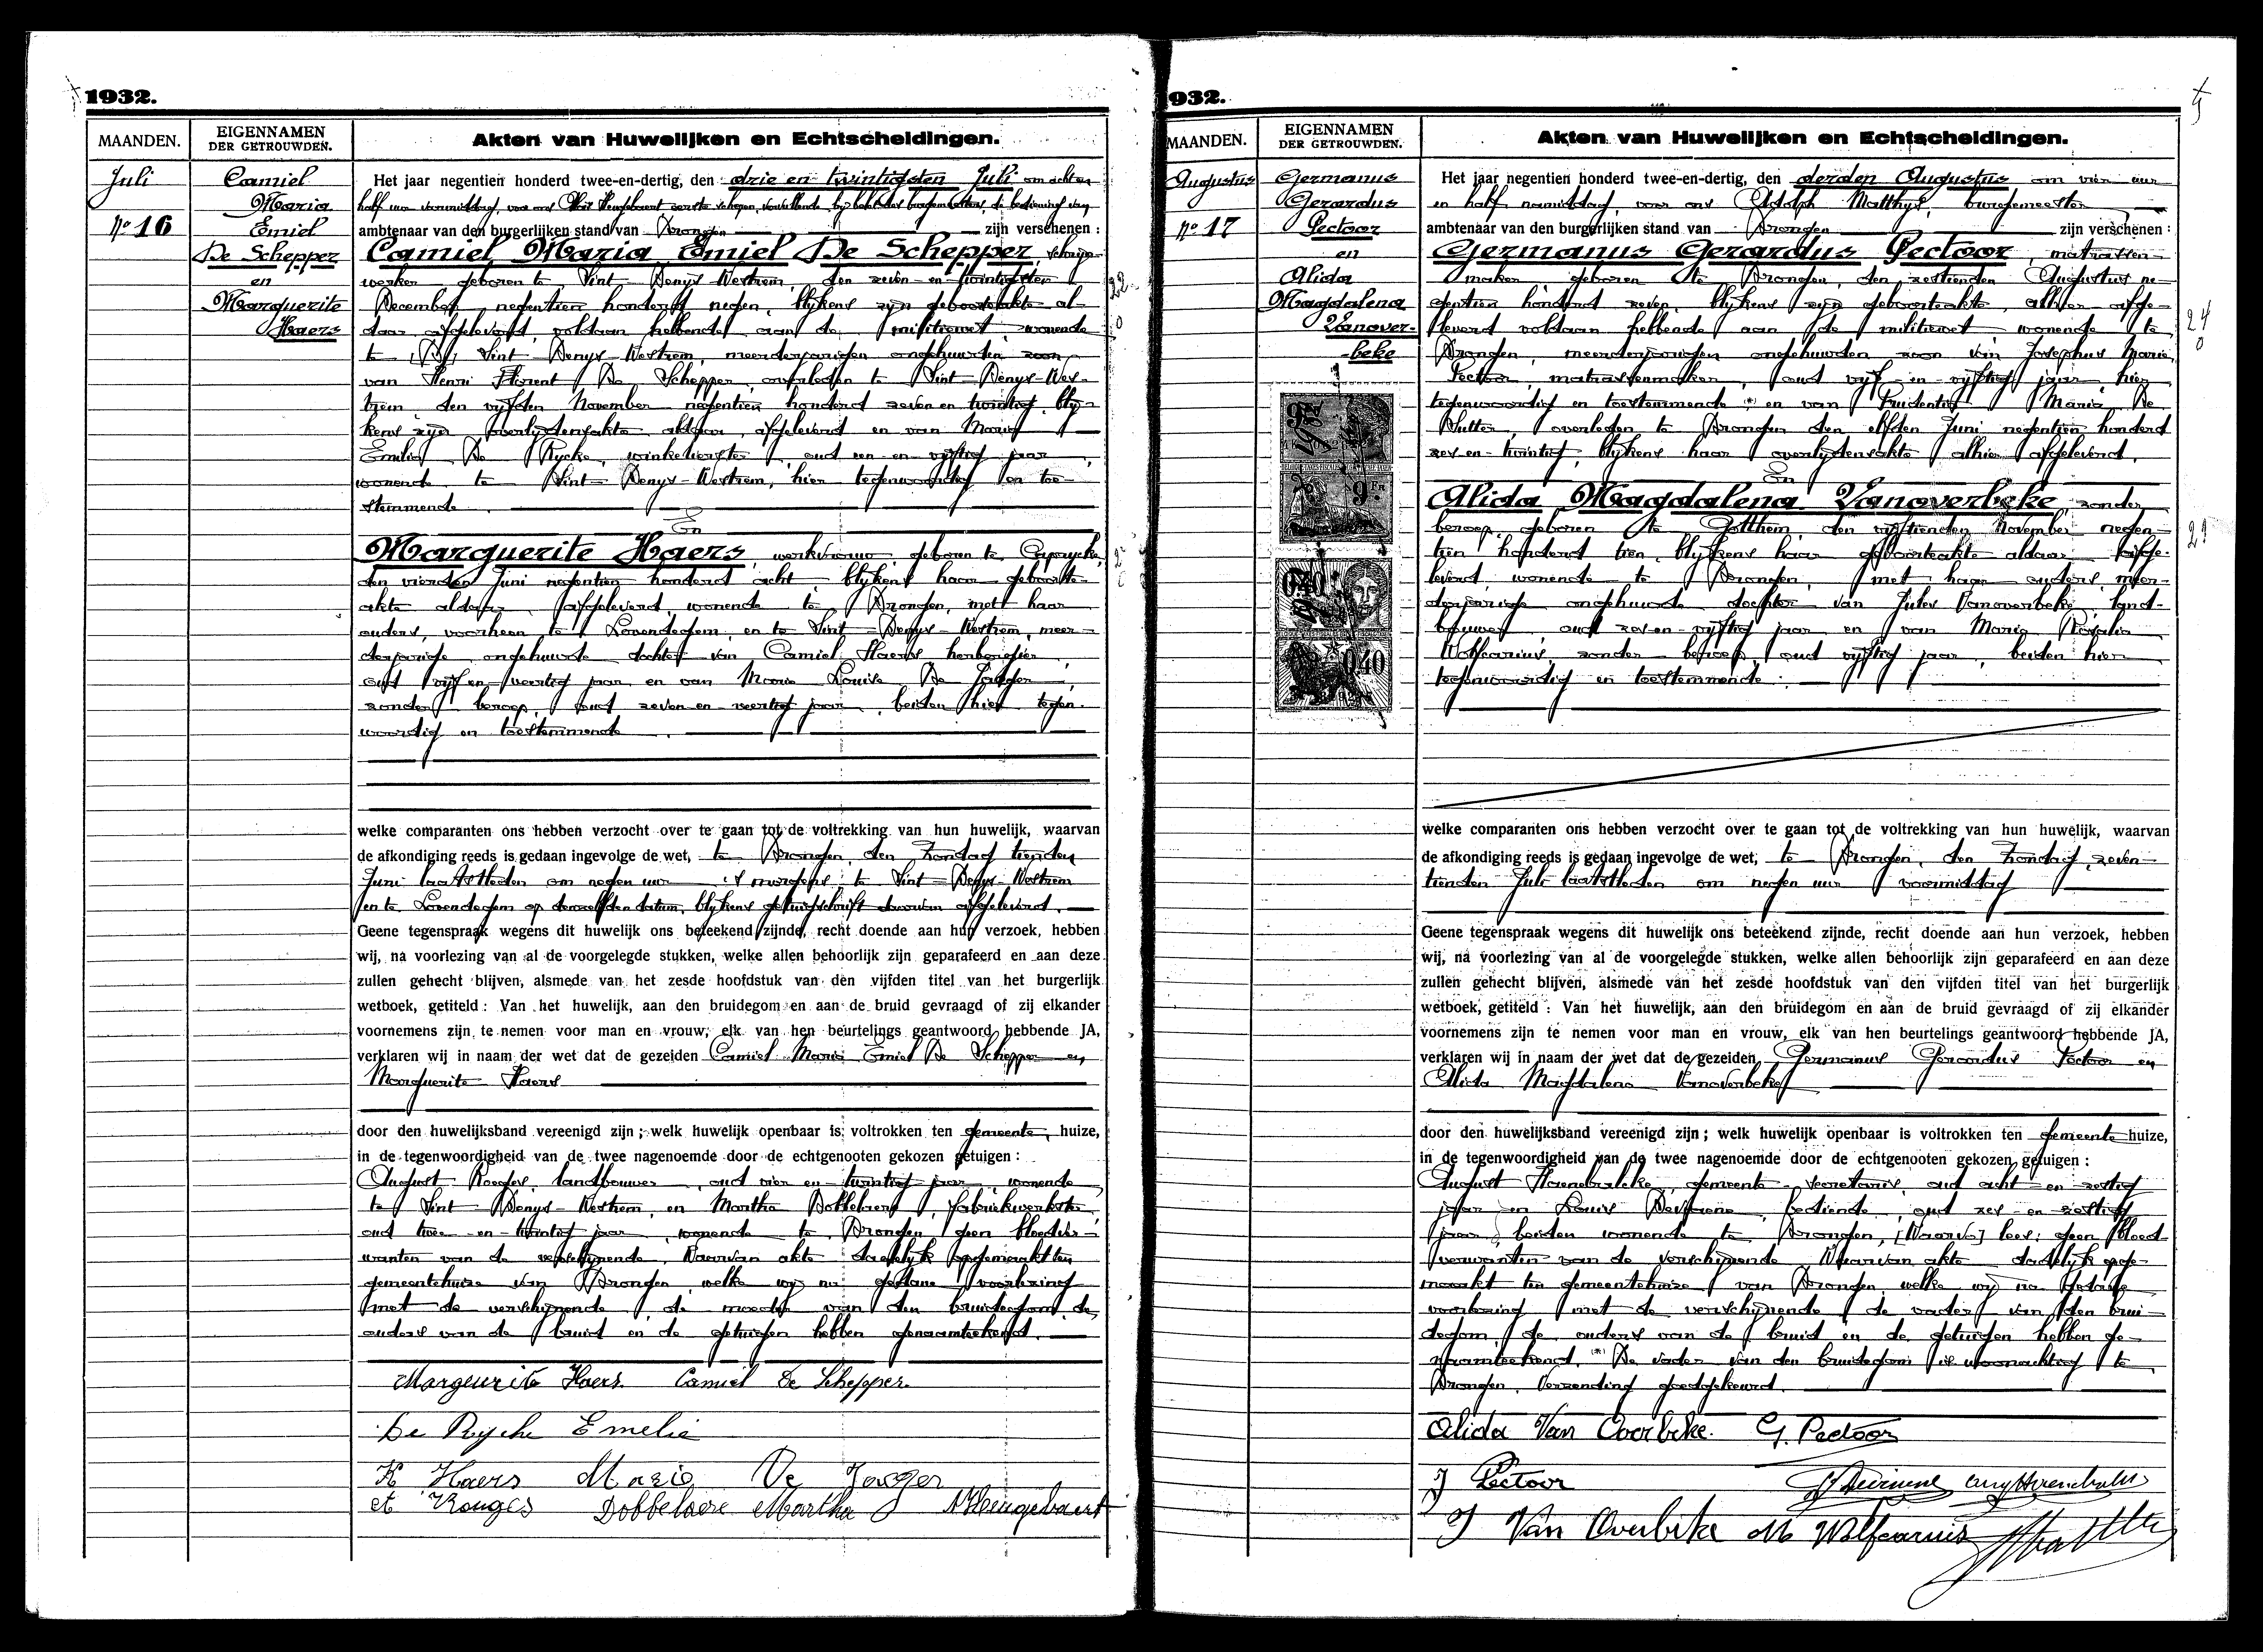 1932.
MAANDEN.
EIGENNAMEN
DER GETROUWDEN.
Akten van Huwelijken en Echtscheidingen.
Juli
No 16
Camiel
Maria
Emiel
De Schepper
en
Marguerite
Haers
Het jaar negentien honderd twee-en-dertig, den drie en twintigsten Juli om achten
half uur voormiddag, voor ons
ambtenaar van den burgerlijken stand van Drongen zijn verschenen :
Camiel Maria Emiel De Schepper,
werker geboren te Sint Denys-Westrem, den zeven-en-twintigsten
December negentien honderd negen, blykens zyn geboorteakte al-
daar afgeleverd, voldaan hebbende aan de militiewet wonende
te Sint Denys-Westrem, meerderjarigen ongehuwden zoon
van Henri Florent De Schepper, overleden te Sint-Denys-Wes-
trem den vyfden November negentien honderd zeven en twintig, bly-
kens zyn overlydensakte aldaar afgeleverd en van Maria
Emilia De Rycke, winkelierster, oud een en vyftig jaar,
wonende te Sint-Denys-Westrem, hier tegenwoordig en toe-
stemmende
En
Marguerite Haers, werkvrouw, geboren te Caprycke,
den vierden Juni negentien honderd acht, blykens haar geboorte-
akte aldaar afgeleverd, wonende te Drongen, met haar
ouders, voorheen te Lovendegem en te Sint-Denys-Westrem, meer-
derjarige ongehuwde dochter van Camiel Haers herbergier,
oud vyf en veertig jaar en van Maria Louisa De Jaeger,
zonder beroep, oud zeven en veertig jaar, beiden hier tegen-
woordig en toestemmende.
welke comparanten ons hebben verzocht over te gaan tot de voltrekking van hun huwelijk, waarvan
de afkondiging reeds is gedaan ingevolge de wet, te Drongen, den Zondag tienden
Juni laatstleden om negen uur 's morgens te Sint-Denys-Westrem
en te Lovendegem op denzelfden datum, blykens getuigschrift daarvan afgeleverd.
Geene tegenspraak wegens dit huwelijk ons beteekend zijnde, recht doende aan hun verzoek, hebben
wij, na voorlezing van al de voorgelegde stukken, welke allen behoorlijk zijn geparafeerd en aan deze
zullen gehecht blijven, alsmede van het zesde hoofdstuk van den vijfden titel van het burgerlijk
wetboek, getiteld : Van het huwelijk, aan den bruidegom en aan de bruid gevraagd of zij elkander
voornemens zijn te nemen voor man en vrouw, elk van hen beurtelings geantwoord hebbende JA,
verklaren wij in naam der wet dat de gezeiden Camiel Maria Emiel De Schepper en
Marguerite Haers
door den huwelijksband vereenigd zijn ; welk huwelijk openbaar is voltrokken ten gemeente huize,
in de tegenwoordigheid van de twee nagenoemde door de echtgenooten gekozen getuigen :
August, landbouwer, oud vier en twintig jaar, wonende
te Sint Denys-Westrem, en Martha Dobbelaere, fabriekwerkster,
oud twee-en-twintig jaar, wonende te Drongen geen bloedver-
wanten van de verschynende. Waarvan akte dadelyk opgemaakt ten
gemeentehuize van Drongen, welke wy na gedane voorlezing
met de verschynende, de moeder van den bruidegom, de
ouders van de bruid en de getuigen hebben genaamteekend.
Margeurite Haers Camiel De Schepper.
De Rycke Emelie
K Haers Maria De Jaeger
Dobbelaere Martha
932.
MAANDEN.
EIGENNAMEN
DER GETROUWDEN.
Akten van Huwelijken en Echtscheidingen.
Augustus
No 17
Germanus
Gerardus
Pectoor
en
Alida
Magdalena
Vanover-
beke
9 Fr
0,40
0,40
Het jaar negentien honderd twee-en-dertig, den derden Augustus om vier uur
en half namiddag, voor ons Adolph Matthys, burgemeester
ambtenaar van den burgerlijken stand van Drongen zijn verschenen :
Germanus Gerardus Pectoor, matrassen-
maker, geboren te Drongen, den zestienden Augustus ne-
gentien honderd zeven, blykens zyn geboorteakte alhier afge-
leverd voldaan hebbende aan de militiewet wonende te
Drongen, meerderjarigen ongehuwden zoon van Josephus Maria
Pectoor, matrassenmaker, oud vyf-en-vyftig jaar, hier
tegenwoordig en toestemmende (*) en van Prudentia Maria De
Sutter, overleden te Drongen den elfden Juni negentien honderd
zes en twintig, blykens haar overlydensakte alhier afgeleverd.
En
Alida Magdalena Vanoverbeke, zonder
beroep, geboren te Gotthem, den vyftienden November negen-
tien honderd tien, blykens haar geboorteakte aldaar afge-
leverd, wonende te Drongen, met haar ouders, meer-
derjarige ongehuwde dochter van Jules Vanoverbeke, land-
bouwer, oud zes-en-vyftig jaar en van Maria Rosalia
Wolfcarius, zonder beroep, oud vyftig jaar, beiden hier
tegenwoordig en toestemmende.
welke comparanten ons hebben verzocht over te gaan tot de voltrekking van hun huwelijk, waarvan
de afkondiging reeds is gedaan ingevolge de wet, te Drongen, den Zondag, zeven-
tienden Juli laatstleden om negen uur voormiddag
Geene tegenspraak wegens dit huwelijk ons beteekend zijnde, recht doende aan hun verzoek, hebben
wij, na voorlezing van al de voorgelegde stukken, welke allen behoorlijk zijn geparafeerd en aan deze
zullen gehecht blijven, alsmede van het zesde hoofdstuk van den vijfden titel van het burgerlijk
wetboek, getiteld : Van het huwelijk, aan den bruidegom en aan de bruid gevraagd of zij elkander
voornemens zijn te nemen voor man en vrouw, elk van hen beurtelings geantwoord hebbende JA,
verklaren wij in naam der wet dat de gezeiden Germanus Gerardus Pectoor en
Alida Magdalena Vanoverbeke
door den huwelijksband vereenigd zijn ; welk huwelijk openbaar is voltrokken ten gemeente huize,
in de tegenwoordigheid van de twee nagenoemde door de echtgenooten gekozen getuigen :
August Haenebalcke, gemeente-secretaris, oud acht-en-zestig
jaar en Louis, bediende, oud zes-en-zestig
jaar, beiden wonende te Drongen, [Waarv] lees: geen bloed-
verwanten van de verschynende. Waarvan akte dadelyk opge-
maakt ten gemeentehuize van Drongen, welke wy na gedane
voorlezing met de verschynende, de vader van den brui-
degom, de ouders van de bruid en de getuigen hebben ge-
naamteekend. (*) De vader van den bruidegom is woonachtig te
Drongen. Verzending goedgekeurd.
Alida Van Overbeke. G. Pectoor
J Pectoor
J Van Overbeke M Wolfcarius